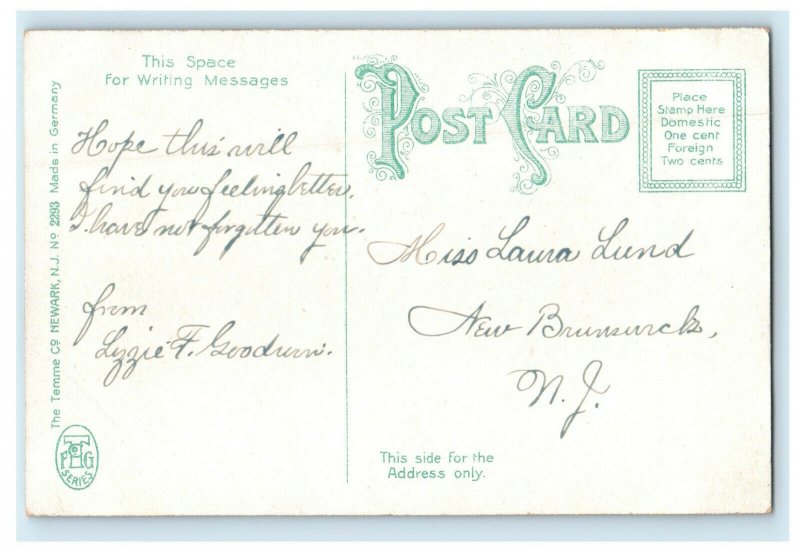 This Space
for Writing Messages
POST CARD
Place
Stamp Here
Domestic
One cent
Foreign
Two cents
The Temme Co NEWARK, N.J. No 2293 Made in Germany
Hope this will
find you feeling better.
I have not forgotten you.
from
Lizzie F. Goodwin.
Miss Laura Lund
New Brunswick,
N. J.
This side for the
Address only.
SERIES